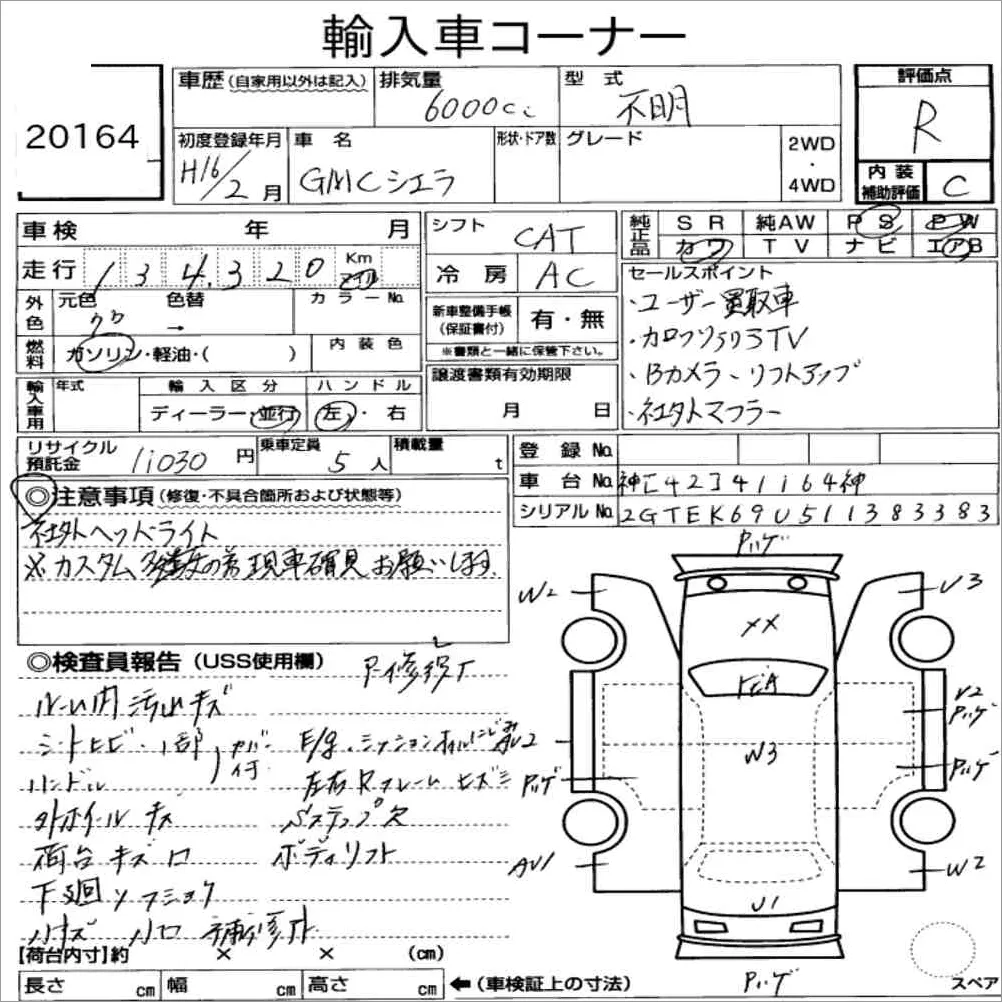 輸入車コーナー
20164
車歴 (自家用以外は記入)
排気量
6000cc
型式
不明
評価点
R
初度登録年月
H16/2月
車名
GMCシエラ
形状・ドア数
グレード
2WD
・
4WD
内装
補助評価
C
車検 年 月
シフト
CAT
純正品
SR 純AW PS PW
カワ TV ナビ エアB
走行 134,320 Km マイル
冷房
AC
セールスポイント
・ユーザー買取車
・カロッツェリアTV
・Bカメラ、リフトアップ
・社外マフラー
外色
元色 色替 カラーNo.
クロ →
新車整備手帳
(保証書付)
有・無
※書類と一緒に保管下さい。
燃料
ガソリン・軽油・( )
内装色
輸入車用
年式 輸入区分 ハンドル
ディーラー・並行 左・右
譲渡書類有効期限
月 日
リサイクル
預託金
11030円
乗車定員
5人
積載量
t
登録No.
車台No. 神[42]41164神
シリアルNo. 2GTEK69U511383383
◎注意事項 (修復・不具合箇所および状態等)
社外ヘッドライト
※カスタム多数の為現車確認お願いします。
◎検査員報告 (USS使用欄)
ルーム内汚れキズ
シートヒビ・1部
カバー付
ハンドル
外ホイールキズ
荷台キズ凹
下廻り
小キズ 小凹 補修跡
E/g、ミッションオイルにじみ
左右Rフレームヒズミ
Sステップ欠
ボディリフト
パッゲ
W2
U3
XX
FガラA
U2
パッゲ
AU2
パッゲ
W3
パッゲ
AU1
W2
U1
パッゲ
【荷台内寸】約 × × (cm)
長さ cm 幅 cm 高さ cm
←(車検証上の寸法)
スペア